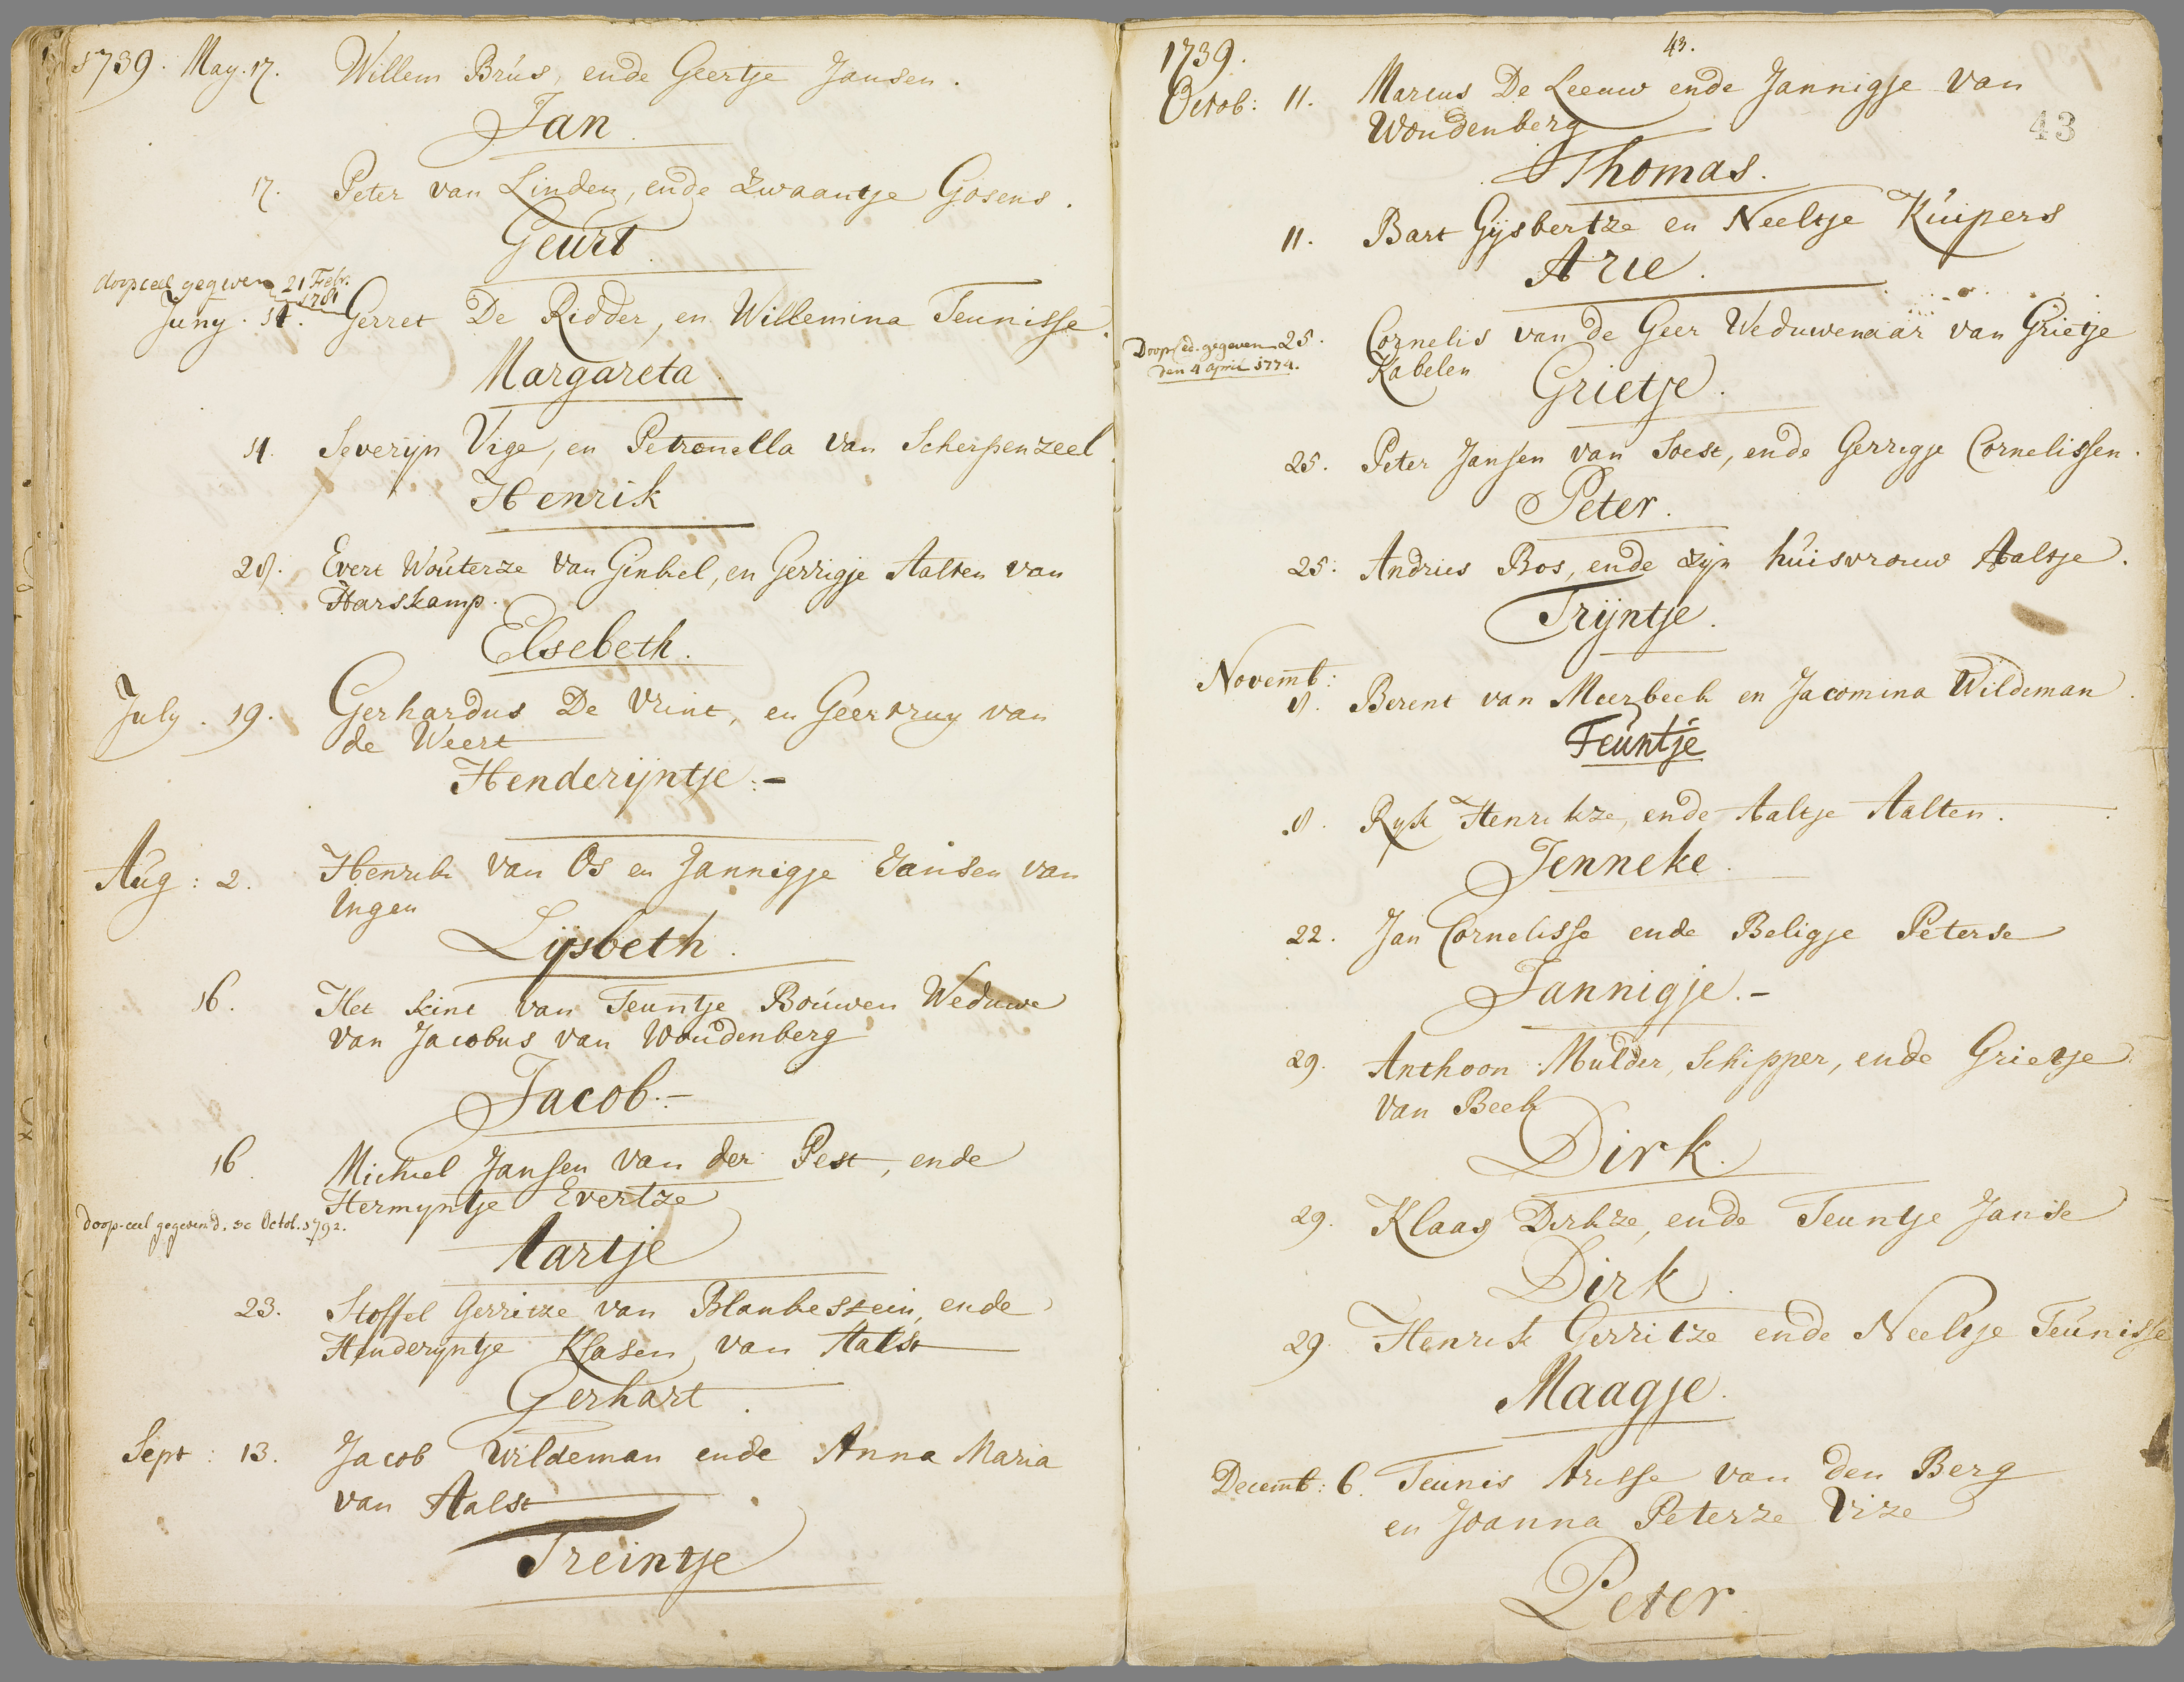 1739. May. 17. Willem Brús, ende Geertje Jansen.
Jan.
17. Peter van Linden, ende Zwaantje Gosens.
Geurt.
doopceel gegeven 21 Febr.
1781
Juny. 14. Gerret De Ridder, en Willemina Teunisse.
Margareta.
14. Severyn Vige, en Petronella van Scherpenzeel
Henrik
28. Evert Woúterze van Ginkel, en Gerrigje Aalten van
Harskamp.
Elsebeth.
July. 19. Gerhardus De Vrint, en Geertruy van
de Weert
Henderijntje.-
Aúg: 2. Henrik van Os en Jannigje Jansen van
Ingen
Lijsbeth.
16. Het kint van Teuntje Boúwen Weduwe
van Jacobus van Woudenberg
Jacob.-
16. Michiel Jansen van der Pest, ende
Hermyntje Evertze
doop-ceel gegeven d. Octob. 1792.
Aartje
23. Stoffel Gerritze van Blankestein, ende
Henderyntje Klasen van Aalst
Gerhart.
Sept: 13. Jacob Wildeman ende Anna Maria
van Aalst
Treintje
1739. 43.
43
Octob: 11. Marcus De Leeuw ende Jannigje van
Woudenberg
Thomas.
11. Bart Gijsbertze en Neeltje Kúipers
Arie.
25. Cornelis van de Geer Weduwenaar van Grietje
Kabelen
Doop ced. gegeven
den 4 april 1774.
Grietje.
25. Peter Jansen van Soest, ende Gerrigje Cornelissen.
Peter.
25. Andries Bos, ende zijn húisvrouw Aaltje.
Trijntje.
Novemb:
8. Berent van Meerbeek en Jacomina Wildeman.
Teuntje
8. Ryk Henrikze, ende Aaltje Aalten.
Jenneke.
22. Jan Cornelisse ende Beligje Peterse
Jannigje.-
29. Anthoon Mulder, Schipper, ende Grietje
van Beek
Dirk.
29. Klaas Dirkze, ende Teuntje Janse
Dirk.
29. Henrik Gerritze ende Neeltje Teúnisse
Maagje.
Decemb: 6. Teunis Arisse van den Berg
en Joanna Peterze Vize
Peter.